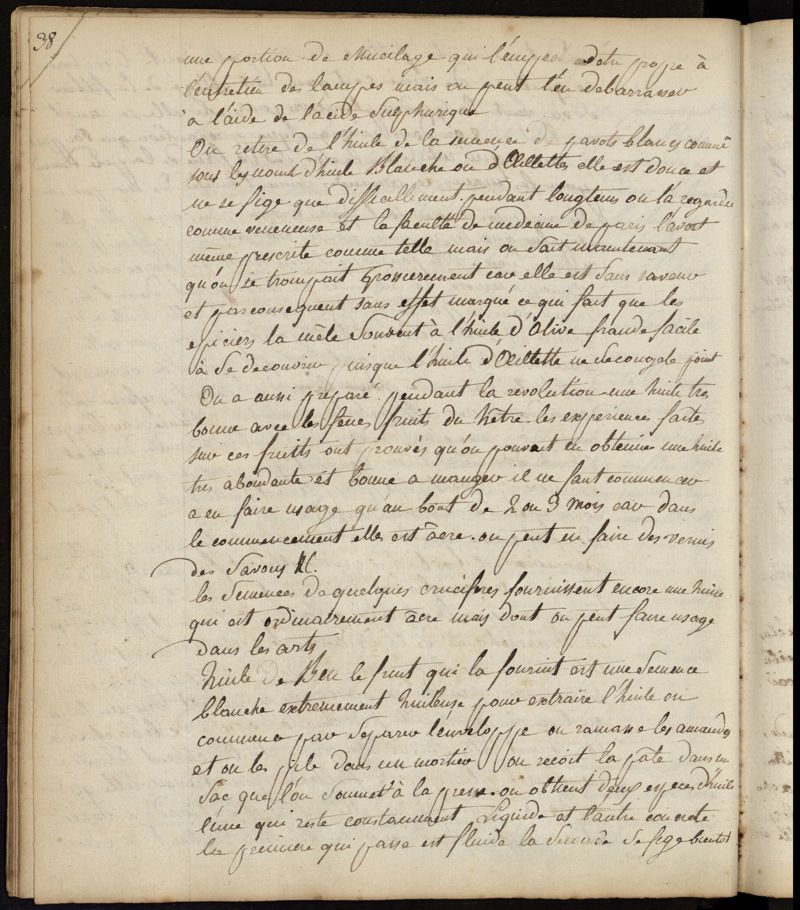 38
une portion de mucilage qui l'empe d'etre propre à
l'entretien des lampes mais on peut l'en debarrasser
à l'aide de l'acide Sulphurique
On retire de l'huile de la semence de pavots blancs connue
sous les noms d'huile Blanche ou d'Oeillettes elle est douce et
ne se fige que difficillement. pendant longtems on l'a regardée
comme veneneuse et la faculté de medecine de paris l'avoit
même prescrite comme telle mais on sait maintenant
qu'on se trompait grossierement car elle est sans saveur
et par consequent sans effet marqué ce qui fait que les
epiciers la mêle souvent à l'huile d'Olive fraude facile
à se decouvrir puisque l'huile d'Oeillette ne se congele point
On a aussi preparé pendant la revolution une huile tres
bonne avec les fruits du hètre. les experiences faites
sur ces fruits ont prouvés qu'on pouvait en obtenir une huile
tres abondante et bonne a manger il ne faut commencer
a en faire usage qu'au bout de 2 ou 3 mois car dans
le commencement elles est âcre. on peut en faire des vernis
des Savons &c.
les Semences de quelques cruciferes fournissent encore une huile
qui est ordinairement âcre mais dont on peut faire usage
dans les arts
huile de Ben le fruit qui la fournit est une Semence
blanche extremement huileuse pour extraire l'huile on
commence par Separer l'enveloppe on ramasse les amandes
et on les pile dans un mortier on recoit la pâte dans un
Sac que l'on Soumet à la presse. on obtient deux especes d'huile
l'une qui reste constamment Liquide et l'autre concrete
la premiere qui passe est fluide la Seconde se fige bientot